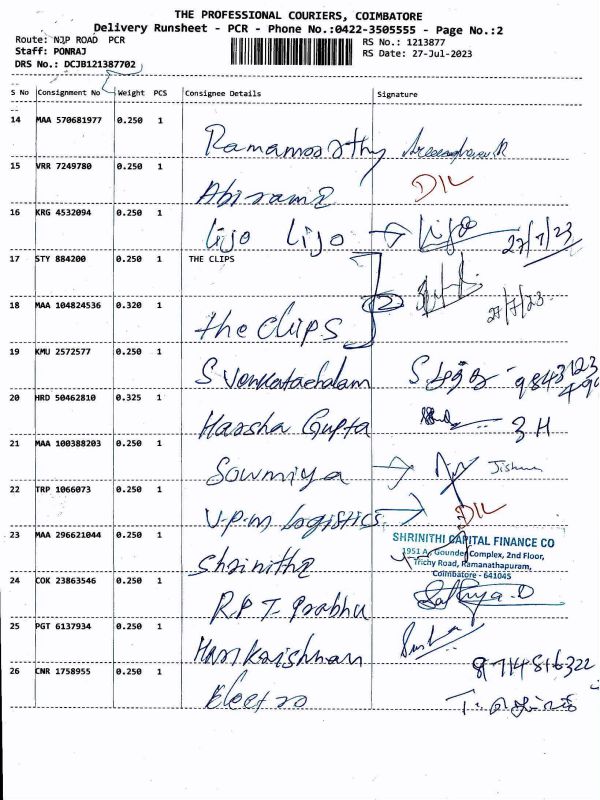 THE PROFESSIONAL COURIERS, COIMBATORE
Delivery Runsheet - PCR - Phone No.:0422-3505555 - Page No.:2
Route: NJP ROAD PCR RS No.: 1213877
Staff: PONRAJ RS Date: 27-Jul-2023
DRS No.: DCJB121387702
S No Consignment No Weight PCS Consignee Details Signature
14 MAA 570681977 0.250 1
Ramamoorthy
15 VRR 7249780 0.250 1
Abirami D/L
16 KRG 4532094 0.250 1
Lijo Lijo Lijo 27/7/23
17 STY 884200 0.250 1 THE CLIPS
18 MAA 104824536 0.320 1 27/7/23
The Clips
19 KMU 2572577 0.250 1
S Venkatachalam
20 HRD 50462810 0.325 1
Harsha Gupta
21 MAA 100388203 0.250 1
Sowmiya
22 TRP 1066073 0.250 1
V.P.M Logistics D/L
23 MAA 296621044 0.250 1 SHRINITHI CAPITAL FINANCE CO
1951 A, Gounder Complex, 2nd Floor,
Shrinithi Trichy Road, Ramanathapuram,
24 COK 23863546 0.250 1 Coimbatore - 641045
R.P.T. Prabhu Sathya.D
25 PGT 6137934 0.250 1
Harikrishnan
26 CNR 1758955 0.250 1 9714816322
Electro